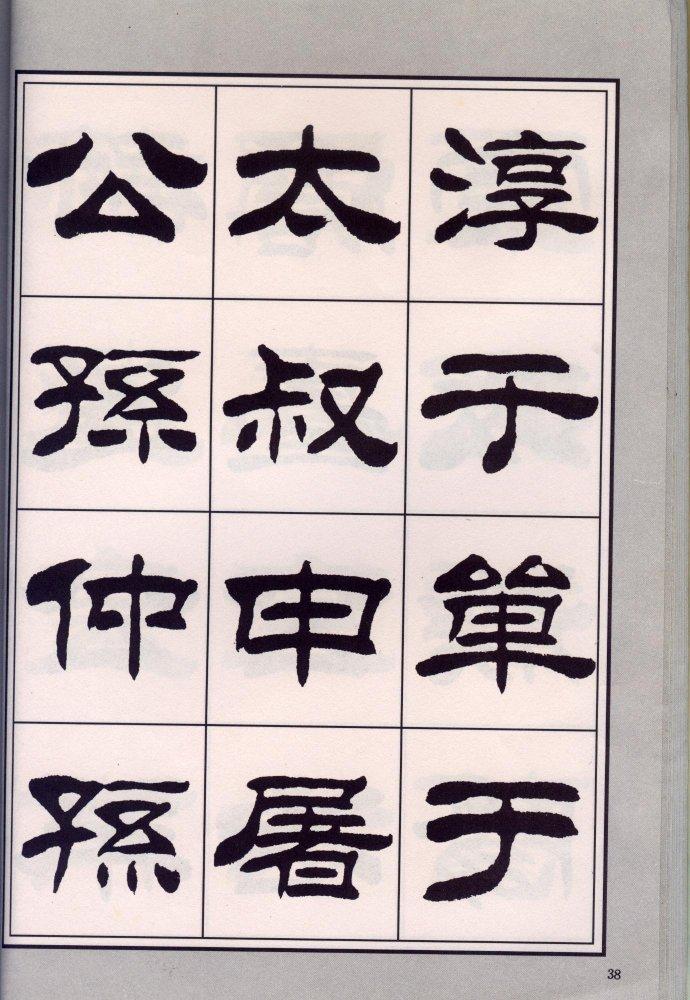 淳于單于
太叔申屠
公孫仲孫
38